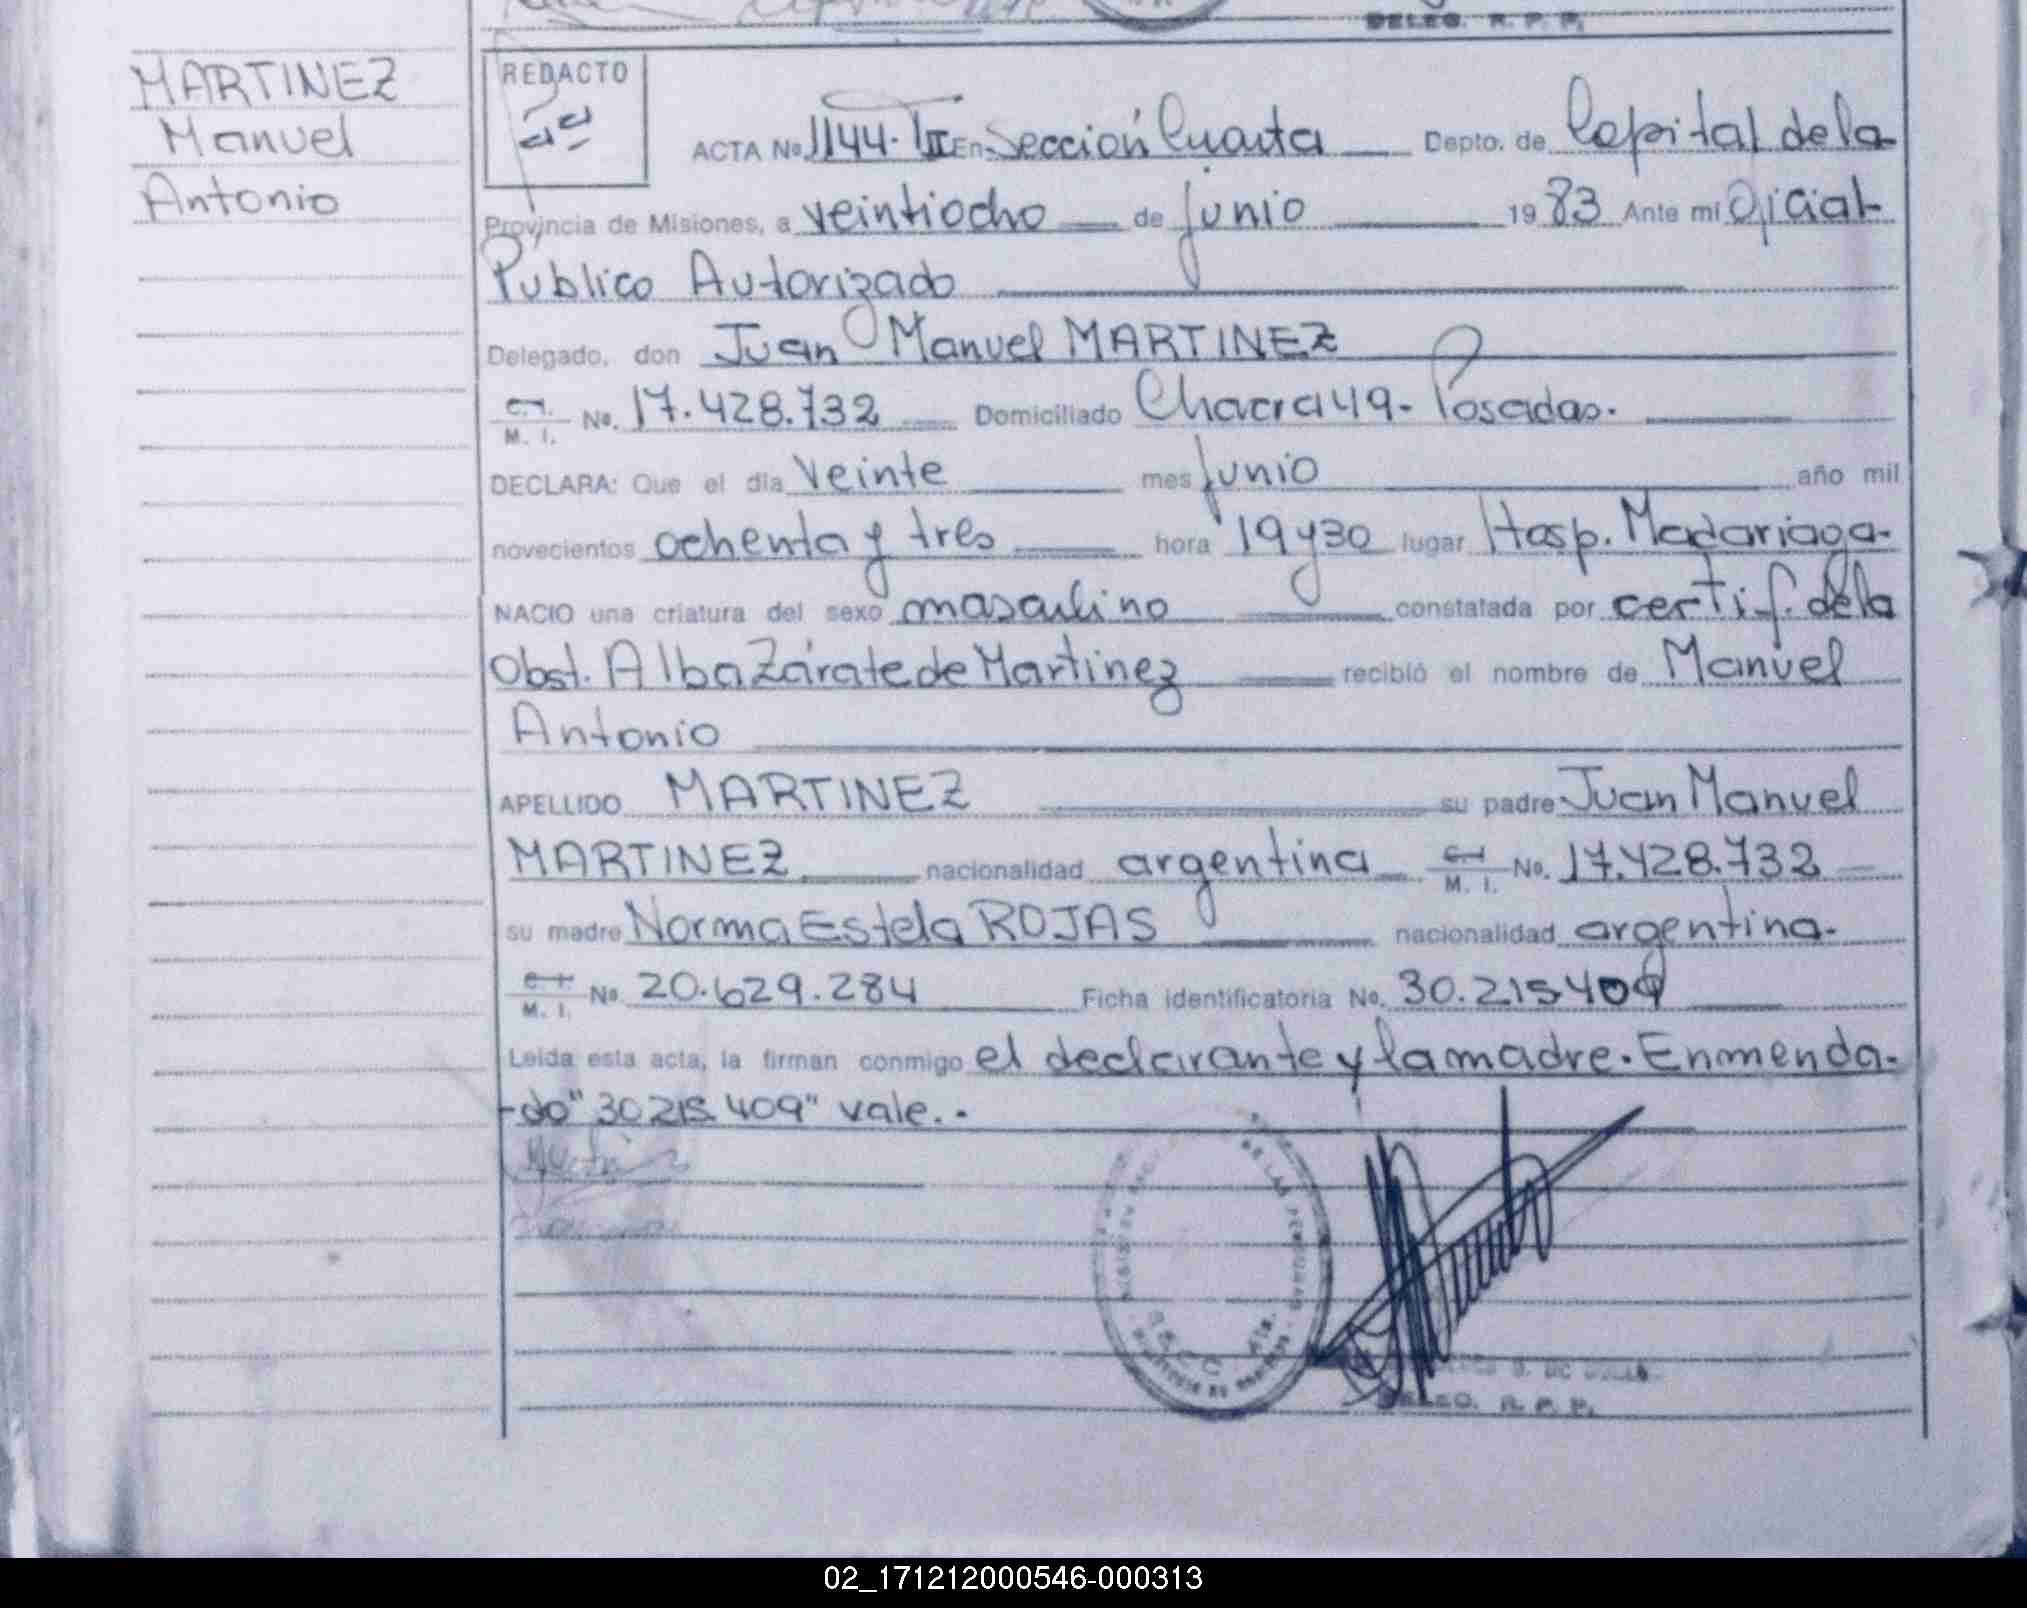 DELEG. R. P. P.
MARTINEZ
Manuel
Antonio
REDACTO
ACTA No 1144. TII En Sección Cuarta Depto. de Capital de la
Provincia de Misiones, a veintiocho de junio 19 83 Ante mi Oficial
Público Autorizado
Delegado, don Juan Manuel MARTINEZ
C.I. M. I. No. 17.428.732 Domiciliado Chacra 49- Posadas.
DECLARA: Que el dia Veinte mes Junio año mil
novecientos ochenta y tres hora 19 y 30 lugar Hosp. Madariaga-
NACIO una criatura del sexo masculino constatada por certif. dela
Obst. Alba Zárate de Martinez recibió el nombre de Manuel
Antonio
APELLIDO MARTINEZ su padre Juan Manuel
MARTINEZ nacionalidad argentina C.I. M. I. No. 17.428.732
su madre Norma Estela ROJAS nacionalidad argentina-
C.I. M. I. No 20.629.284 Ficha identificatoria No. 30.215409
Leída esta acta, la firman conmigo el declarante y la madre. Enmenda-
-do "30.215.409" vale..
DE LAS PERSONAS
DELEG. R. P. P.
02_171212000546-000313